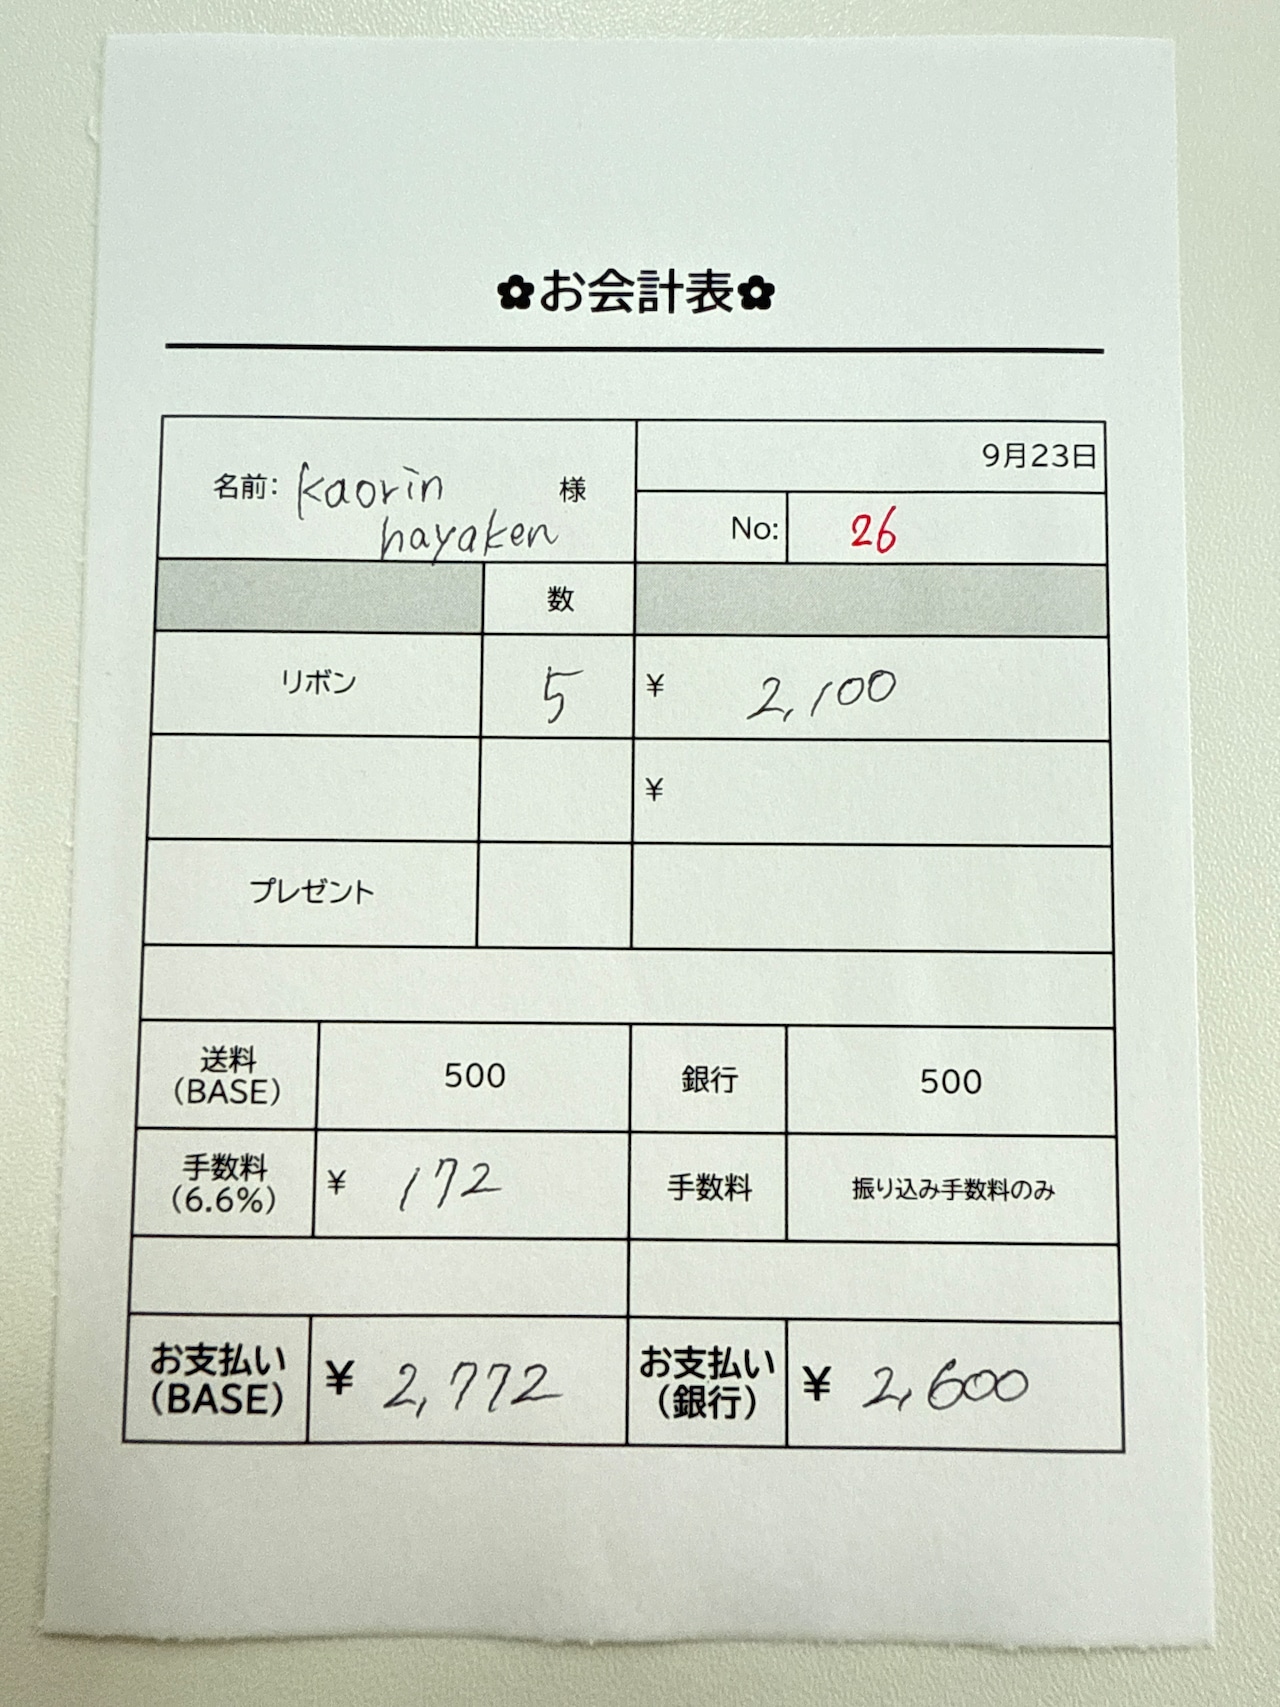 ✿お会計表✿
名前: kaorin 様
hayaken
9月23日
No: 26
数
リボン 5 ¥ 2,100
¥
プレゼント
送料 500 銀行 500
(BASE)
手数料 ¥ 172 手数料 振り込み手数料のみ
(6.6%)
お支払い ¥ 2,772 お支払い ¥ 2,600
(BASE) (銀行)